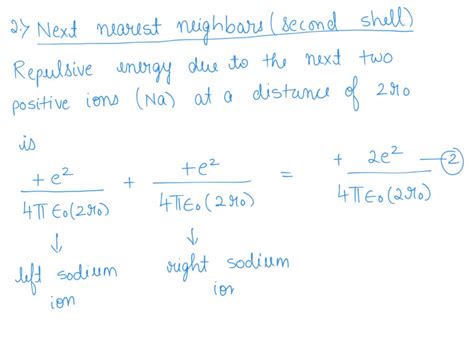 2:> Next nearest neighbars (second shell)
Repulsive energy due to the next two
positive ions (Na) at a distance of 2r0
is
+e²/4πϵ₀(2r₀) + +e²/4πϵ₀(2r₀) = + 2e²/4πϵ₀(2r₀) —②
↓ ↓
left sodium ion right sodium ion